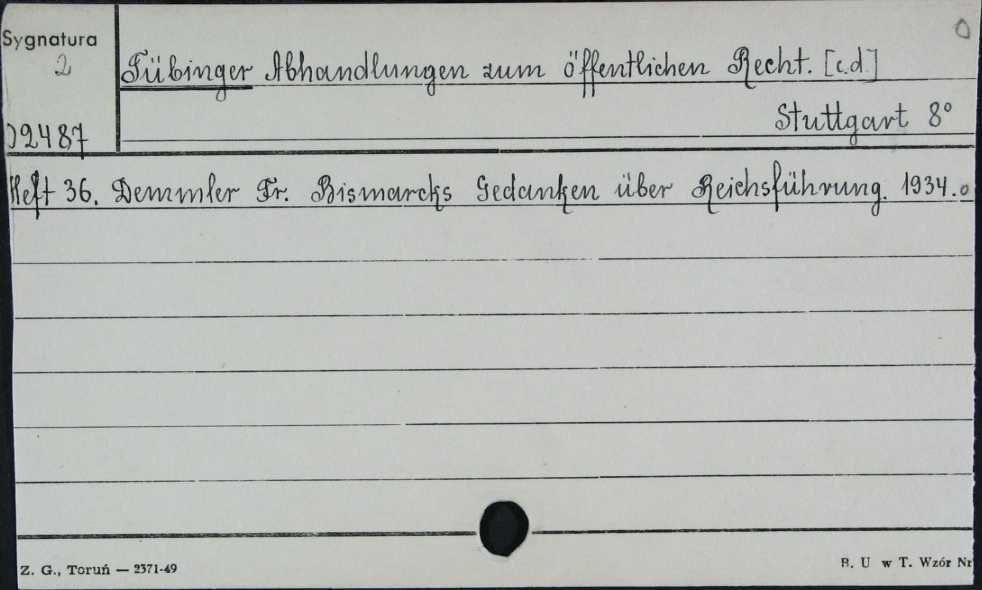 Sygnatura
2
02487
Tübinger Abhandlungen zum öffentlichen Recht. [c.d.]
Stuttgart 8°
Heft 36. Demmler Fr. Bismarcks Gedanken über Reichsführung. 1934.
Z. G., Toruń — 2371-49
B. U w T. Wzór Nr